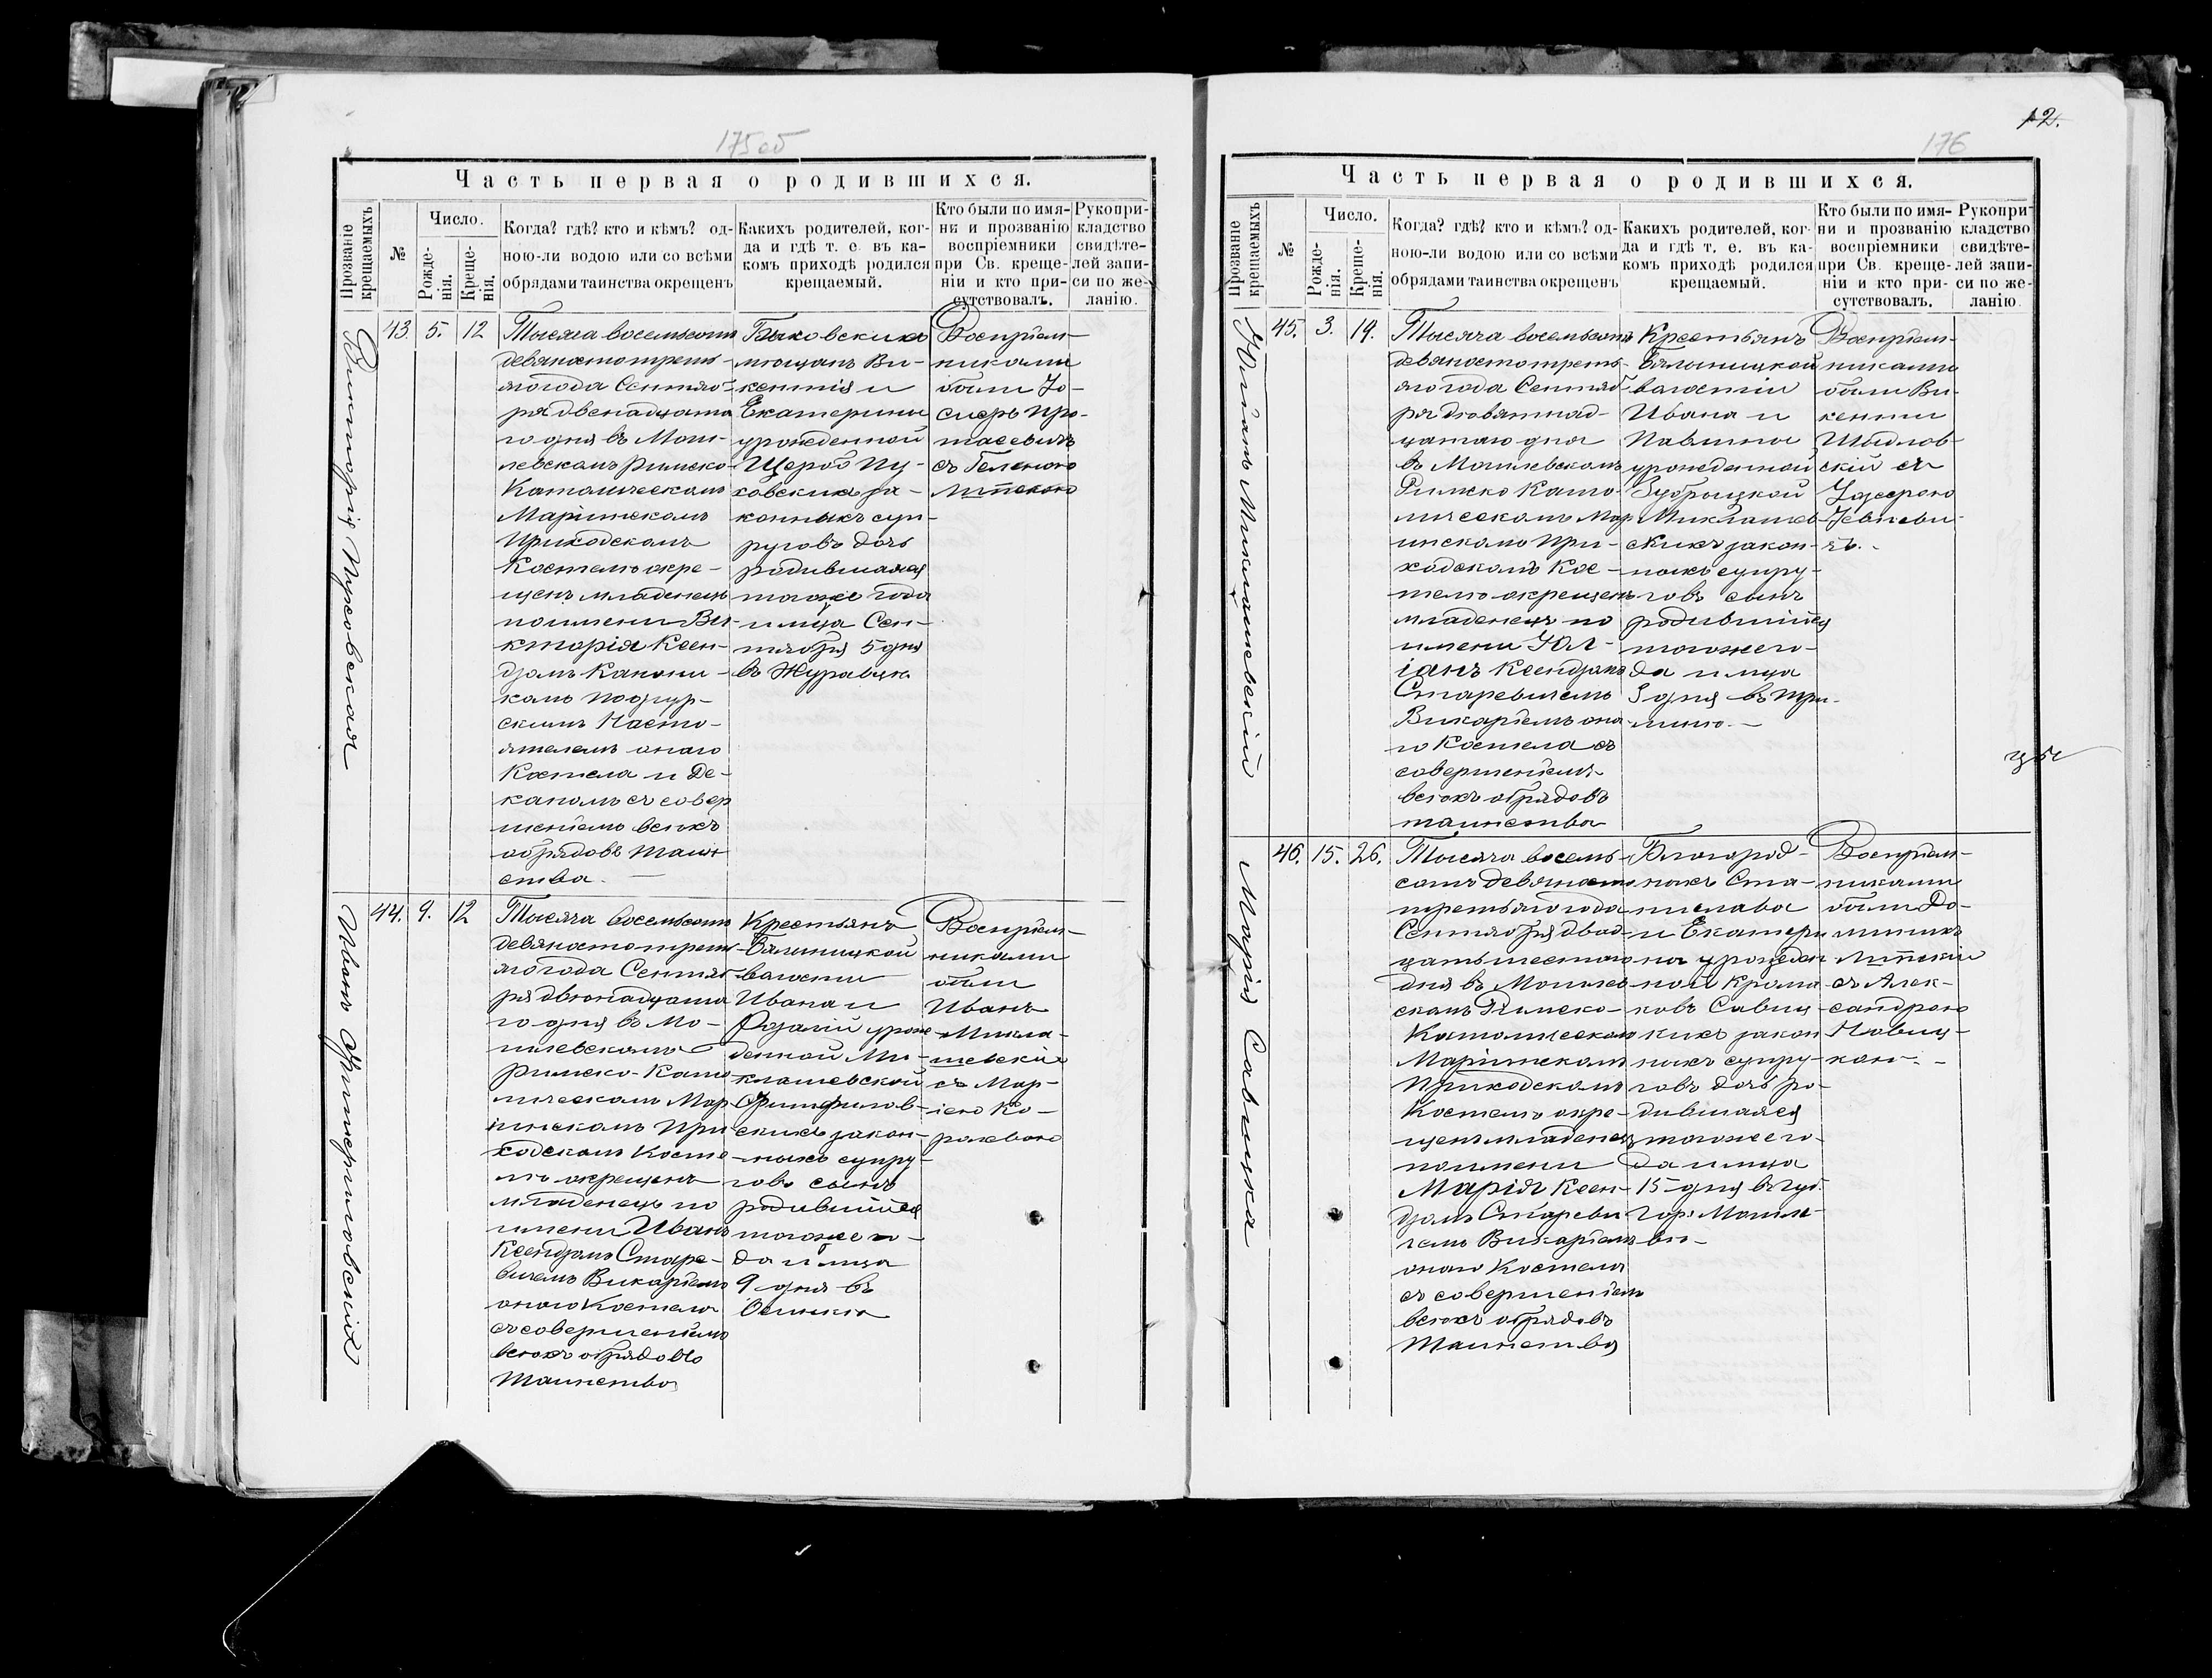 175 об
Часть первая о родившихся.
Прозваніе крещаемыхъ
№
Число.
Рожде-
нія.
Креще-
нія.
Когда? гдѣ? кто и кѣмъ? од-
ною-ли водою или со всѣми
обрядами таинства окрещенъ
Какихъ родителей, ког-
да и гдѣ т. е. въ ка-
комъ приходѣ родился
крещаемый.
Кто были по имя-
ни и прозванію
воспріемники
при Св. креще-
ніи и кто при-
сутствовалъ.
Рукопри-
кладство
свидѣте-
лей запи-
си по же-
ланію.
Викторія Пуховская
43. 5. 12
Тысяча восемьсотъ
девяносто треть-
яго года Сентяб-
ря двенадцата
го дня въ Моги-
левскомъ Римско-
Католическомъ
Маріинскомъ
Приходскомъ
Костелѣ окре-
щенъ младенецъ
по имени Ви-
кторія Ксен-
дзомъ Канони-
комъ
скимъ Насто-
ятелемъ онаго
Костела и Де-
каномъ съ совер
шеніемъ всѣхъ
обрядовъ Таин
ства.
Быховскихъ
мѣщанъ Ви-
кентія и
Екатерины
урожденной
Щербо Пу-
ховскихъ за-
конныхъ суп-
руговъ дочь
родившаяся
тогоже года
и мѣца Сен-
тября 5 дня
въ Журавцѣ
Воспріем-
никами
были Іо-
сифъ Про-
тасевичъ
съ Геленою
44. 9. 12
Тысяча восемьсотъ
девяносто треть-
яго года Сентяб
ря двѣнадцата
го дня въ Мо-
гилевскомъ
Римско-Като
лическомъ Мар
іинскомъ При
ходскомъ Косте
лѣ окрещенъ
младенецъ по
имени Иванъ
Ксендзомъ Старе-
вичемъ Викаріемъ
онаго Костела
съ совершеніемъ
всѣхъ обрядовъ
Таинства
Крестьянъ
Бялыницкой
волости
Ивана и
Розаліи урож
денной Ми-
клашевской
скихъ закон-
ныхъ супру-
говъ сынъ
родившійся
тогоже го-
да и мѣца
9 дня въ
Осинкѣ
Воспріем-
никами
были
Иванъ
Микла-
шевскій
съ Мар-
іею Ко-
12.
176
Часть первая о родившихся.
Прозваніе крещаемыхъ
№
Число.
Рожде-
нія.
Креще-
нія.
Когда? гдѣ? кто и кѣмъ? од-
ною-ли водою или со всѣми
обрядами таинства окрещенъ
Какихъ родителей, ког-
да и гдѣ т. е. въ ка-
комъ приходѣ родился
крещаемый.
Кто были по имя-
ни и прозванію
воспріемники
при Св. креще-
ніи и кто при-
сутствовалъ.
Рукопри-
кладство
свидѣте-
лей запи-
си по же-
ланію.
Юліанъ Миклашевскій
45. 3. 19.
Тысяча восемьсотъ
девяносто треть-
яго года Сентяб
ря девятнад-
цатаго дня
въ Могилевскомъ
Римско Като-
лическомъ Мар
іинскомъ При-
ходскомъ Кос-
телѣ окрещенъ
младенецъ по
имени Юл-
іанъ Ксендзомъ
Старевичемъ
Викаріемъ она-
го Костела съ
совершеніемъ
всѣхъ обрядовъ
таинства
Крестьянъ
Бялыницкой
волости
Ивана и
Павлины
урожденной
Зубрицкой
Миклашев-
скихъ закон-
ныхъ супру-
говъ сынъ
родившійся
тогоже го-
да и мѣца
3 дня въ
Воспріем-
никами
были Ви-
кентій
Шидлов-
скій съ
46. 15. 26.
Марія Савицка
Тысяча восемь-
сотъ девяносто
третьяго года
Сентября двад-
цать шестаго
дня въ Могилев
скомъ Римско-
Католическомъ
Маріинскомъ
Приходскомъ
Костелѣ окре-
щенъ младенецъ
по имени
Марія Ксен-
дзомъ Стареви
чемъ Викаріемъ
онаго Костела
съ совершеніемъ
всѣхъ обрядовъ
Таинства
Благород-
ныхъ Ста-
нислава
и Екатери
ны урожден
ной
Савиц-
кихъ закон
ныхъ супру-
говъ дочь ро-
дившаяся
тогоже го-
да и мѣца
15 дня въ губ.
гор. Могиле-
вѣ-
Воспріем-
никами
были До-
миникъ
съ Алек-
сандрою
Новиц-
кою